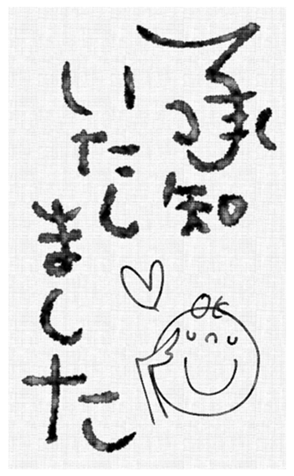 承知
いたし
ました
OK